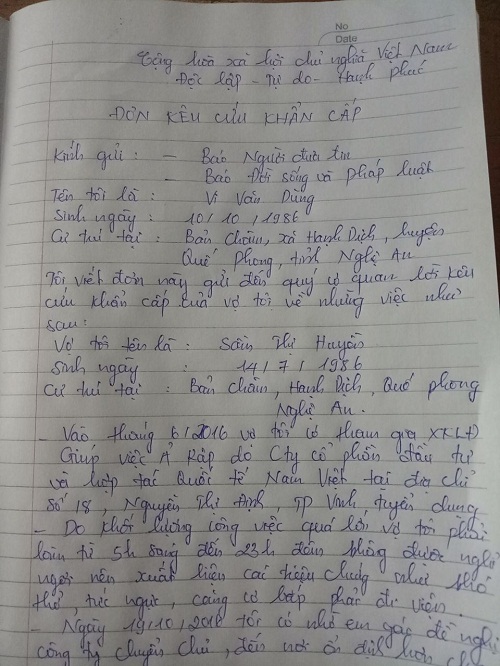 No
Date
Cộng hoà xã hội chủ nghĩa Việt Nam
Độc lập - Tự do - Hạnh phúc
ĐƠN KÊU CỨU KHẨN CẤP
Kính gửi : - Báo Người đưa tin
- Báo Đời sống và pháp luật
Tên tôi là : Vi Văn Dũng
Sinh ngày : 10 / 10 / 1986
Cư trú tại : Bản Chăm, xã Hạnh Dịch, huyện
Quế Phong, tỉnh Nghệ An
Tôi viết đơn này gửi đến quý cơ quan lời kêu
cứu khẩn cấp của vợ tôi về những việc như
sau:
Vợ tôi tên là : Sầm Thị Huyền
Sinh ngày : 14 / 7 / 1986
Cư trú tại : Bản chăm, Hạnh Dịch, Quế phong
Nghệ An.
- Vào tháng 6/2016 vợ tôi có tham gia XKLĐ
Giúp việc Ả Rập do Cty cổ phần đầu tư
và hợp tác Quốc tế Nam Việt tại địa chỉ
số 18, Nguyễn Thị Định, TP Vinh, tuyển dụng
- Do khối lượng công việc quá lớn vợ tôi phải
làm từ 5h sáng đến 23h đêm không được nghỉ
ngơi nên xuất hiện các triệu chứng như khó
thở, tức ngực, căng cơ bắp phải đi viện.
- Ngày 19/10/2016 tôi có nhờ em gái đề nghị
công ty chuyển chủ, đến nơi ổn định hơn